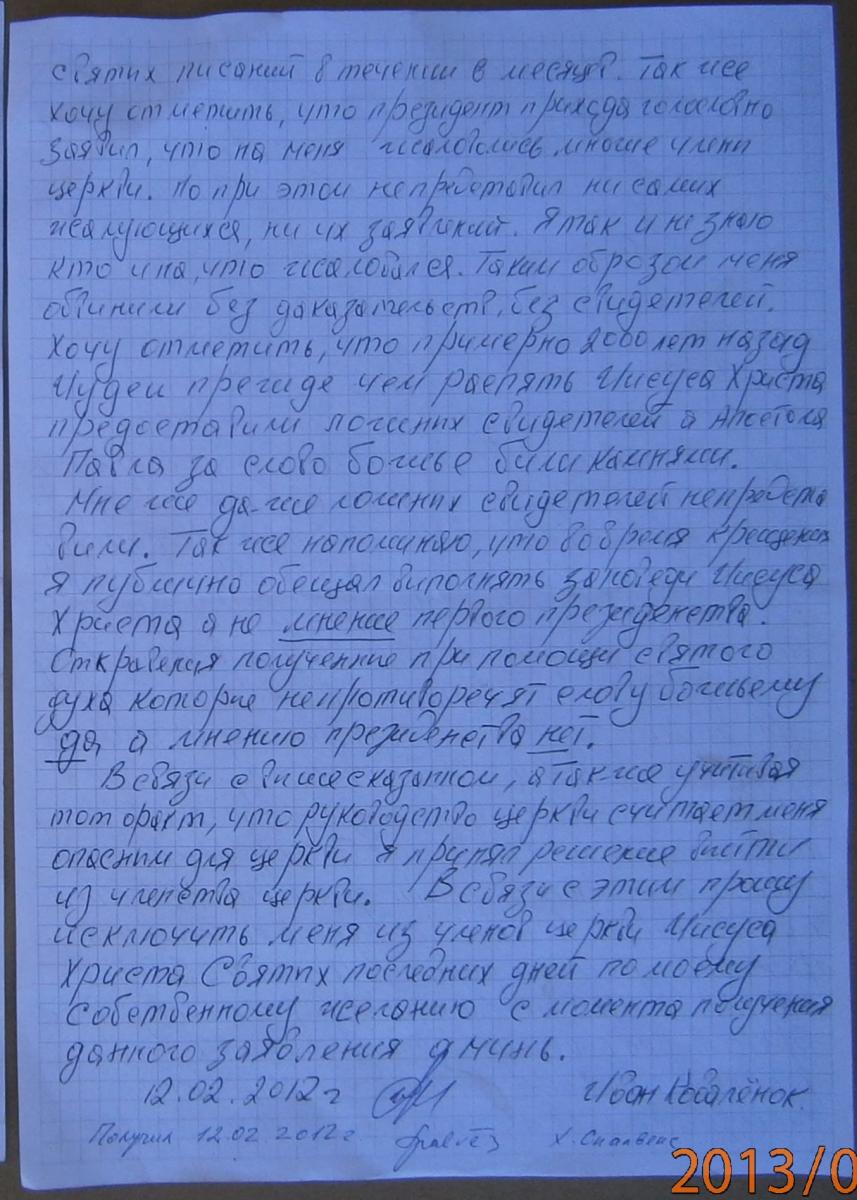 святих писаний в течении 6 месяцев. Так же
хочу отметить, что президент прихода голословно
заявил, что на меня жаловолись многие члени
церкви. Но при этом непредоставил ни самих
жалующихся, ни их заявлений. Я так и не знаю
кто и на, что жаловался. Таким образом меня
обвинили без даказательств, без свидетелей.
Хочу отметить, что примерно 2000 лет назад
Иудеи прежде чем распять Иисуса Христа
предоставили ложних свидетелей а Апостола
Павла за слово божье били камнями.
Мне же да-же ложних свидетелей непредста
вили. Так же напоминаю, что во время крещения
я публично обещал виполнять заповеди Иисуса
Христа а не мнение первого президенства.
Откравения полученние при помощи святого
духа которие непротиворечят слову божьему
да а мнению президенства нет.
В связи с вишесказанном, а так-же учитивая
тот факт, что руководство церкви считает меня
опасним для церкви я принял решение вийти
из членства церкви. В связи с этим прошу
исключить меня из членов церкви Иисуса
Христа Святих последних дней по моему
собственному желанию с момента получения
данного заявления аминь.
12.02.2012г Иван Ковалёнок.
Получил 12.02 2012г Х.
2013/0